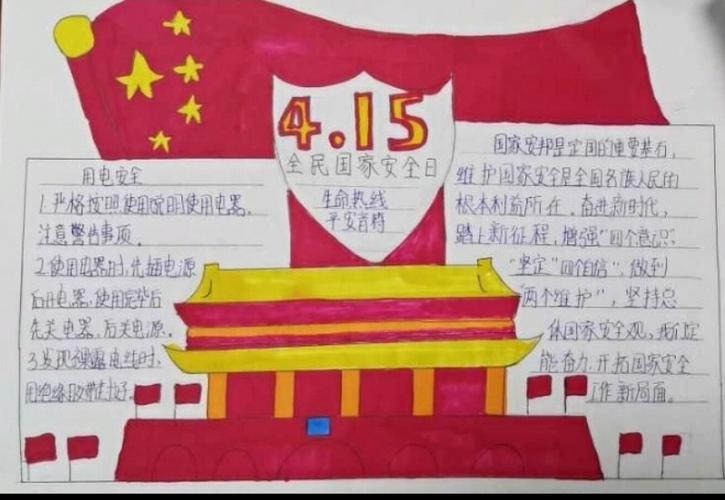 4.15
全民国家安全日
生命热线
平安首榜
用电安全
1.严格按照使用说明使用电器,
注意警告事项。
2.使用电器时,先插电源
后开电器,使用完毕后
先关电器,后关电源。
3.发现裸露电线时,
用绝缘胶带封好。
国家安邦是定国的重要基石,
维护国家安全是全国各族人民的
根本利益所在。奋进新时代,
踏上新征程,增强"四个意识"
"坚定"四个自信",做到
"两个维护",坚持总
体国家安全观,我们定
能奋力开拓国家安全
工作新局面。